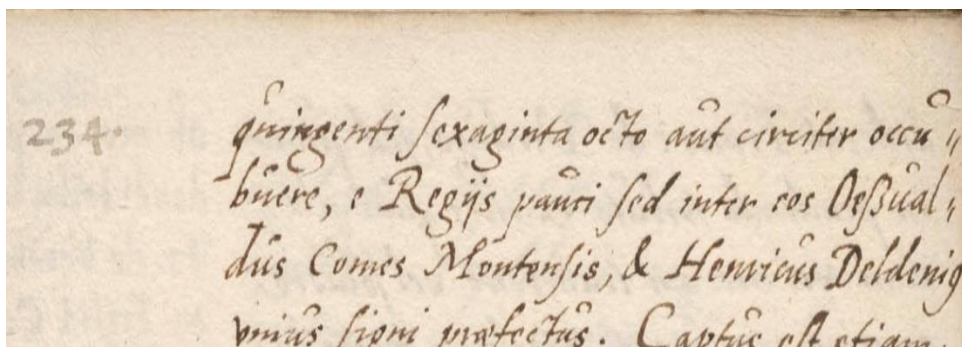 234.
quingenti sexaginta octo aut circiter occu„
buere, e Regijs pauci sed inter eos Oeßual„
dus Comes Montensis, & Henricus Deldenig
vnius signi præfectus. Captus est etiam